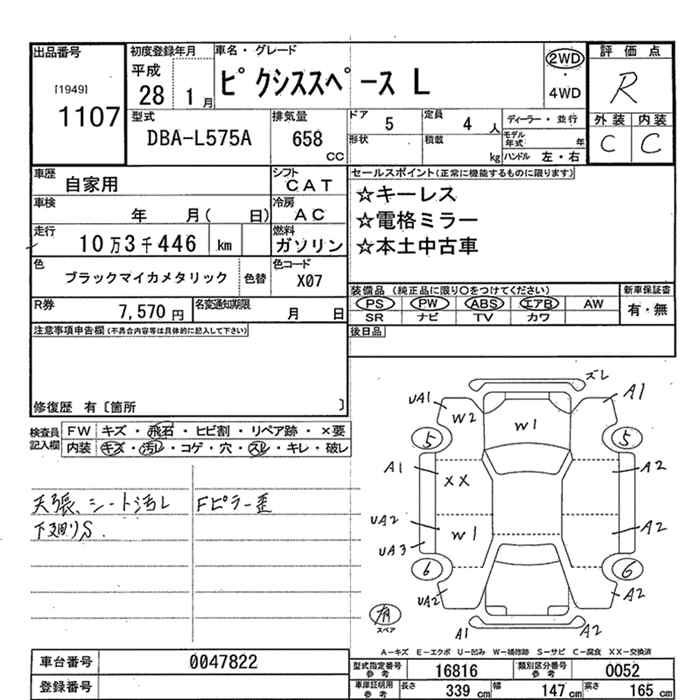 出品番号
[1949]
1107
初度登録年月
平成
28 1月
車名・グレード
ピクシススペース L
2WD
・
4WD
評価点
R
外装 内装
C C
型式
DBA-L575A
排気量
658
CC
ドア 5
定員 4 人
形状
積載 kg
ディーラー・並行
モデル年式 年
ハンドル 左・右
車歴 自家用
シフト CAT
車検 年 月( 日)
冷房 AC
走行 10万3千446 km
燃料 ガソリン
色 ブラックマイカメタリック 色替
色コード X07
R券 7,570円
名変通知期限 月 日
セールスポイント(正常に機能するものに限ります)
☆キーレス
☆電格ミラー
☆本土中古車
装備品 (純正品に限り○をつけてください)
新車保証書
PS PW ABS エアB AW
有・無
SR ナビ TV カワ
後日品
注意事項申告欄(不具合内容等は具体的に記入して下さい)
修復歴 有〔箇所 〕
検査員記入欄
FW キズ・飛石・ヒビ割・リペア跡・×要
内装 キズ・汚レ・コゲ・穴・スレ・キレ・破レ
天張、シート汚レ
下廻りS
Fピラー歪
ズレ
UA1 W2 W1 A1
5 5
A1 XX A2
UA2 W1 A2
UA3
6 6
UA2 A2
有
スペア
A1 A2
A−キズ E−エクボ U−凹み W−補修跡 S−サビ C−腐食 XX−交換済
車台番号 0047822
登録番号
型式指定番号 参考 16816
類別区分番号 参考 0052
車庫証明用 参考 長さ 339 cm 幅 147 cm 高さ 165 cm